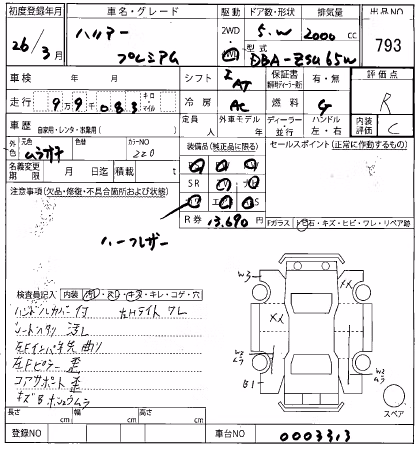 初度登録年月 車名・グレード 駆動 ドア数・形状 排気量 出品NO
26/3月 ハリアー プレミアム 2WD 4WD 5.W 2000cc 793
型式 DBA-ZSU65W
車検 年 月 シフト IAT 保証書 有・無 評価点
走行 99083 キロ・マイル 冷房 AC 燃料 G R
車歴 自家用・レンタ・教習用( ) 定員 外車モデル 年 ディーラー・並行 ハンドル 左・右 内装評価 C
外色 元色 ムラサキ 色替 カラーNO 220 装備品(純正品に限る) セールスポイント(正常に作動するもの)
名義変更期限 月 日迄 積載 t SR
注意事項(欠品・修復・不具合箇所および状態)
R券 13,690円
ハーフレザー Fガラス 飛石・キズ・ヒビ・ワレ・リペア跡
検査員記入 内装 キレ・コゲ・穴
ハンドルカバー付 左Hライト ワレ
シート 汚レ
左Fインパネ先曲り
左Fピラー 歪
コアサポート 歪
キズ B ホシュウムラ
W3
XX
XX
XX
W2 ムラ
W2 ムラ
B1
スペア
長さ cm 幅 cm 高さ cm
登録NO 車台NO 0003313